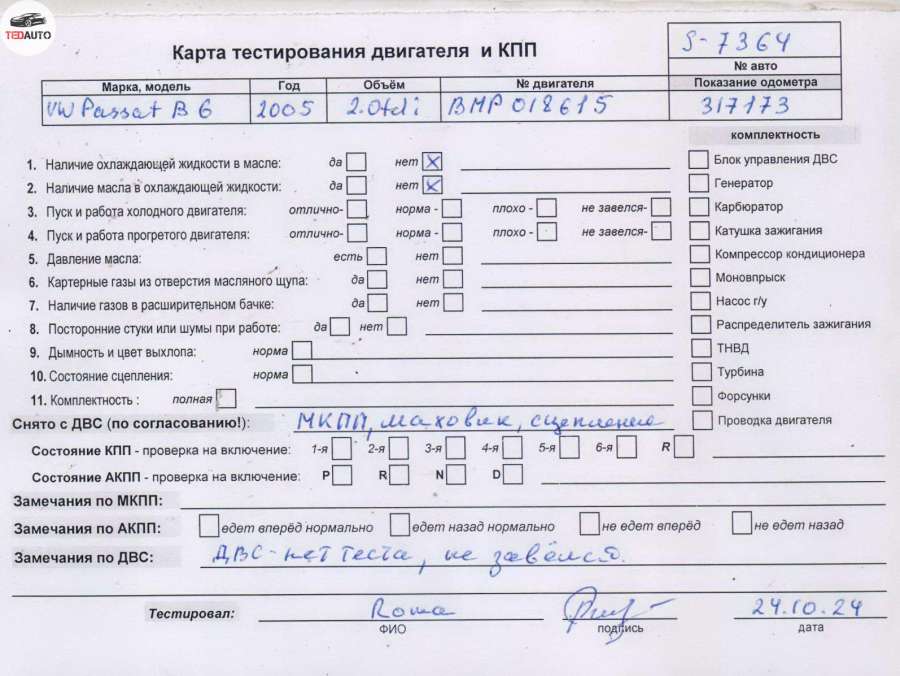 TEDAUTO
Карта тестирования двигателя и КПП
S-7364
№ авто
Марка, модель Год Объём № двигателя Показание одометра
VW Passat B 6 2005 2.0tdi BMP 018615 317173
комплектность
1. Наличие охлаждающей жидкости в масле: да нет x Блок управления ДВС
2. Наличие масла в охлаждающей жидкости: да нет x Генератор
3. Пуск и работа холодного двигателя: отлично- норма - плохо - не завелся- Карбюратор
4. Пуск и работа прогретого двигателя: отлично- норма - плохо - не завелся- Катушка зажигания
5. Давление масла: есть нет Компрессор кондиционера
6. Картерные газы из отверстия масляного щупа: да нет Моновпрыск
7. Наличие газов в расширительном бачке: да нет Насос г/у
8. Посторонние стуки или шумы при работе: да нет Распределитель зажигания
9. Дымность и цвет выхлопа: норма ТНВД
10. Состояние сцепления: норма Турбина
11. Комплектность : полная Форсунки
Снято с ДВС (по согласованию!): МКПП, маховик, сцепление Проводка двигателя
Состояние КПП - проверка на включение: 1-я 2-я 3-я 4-я 5-я 6-я R
Состояние АКПП - проверка на включение: P R N D
Замечания по МКПП:
Замечания по АКПП: едет вперёд нормально едет назад нормально не едет вперёд не едет назад
Замечания по ДВС: ДВС - нет теста, не завёлся.
Тестировал: Roma 24.10.24
ФИО подпись дата